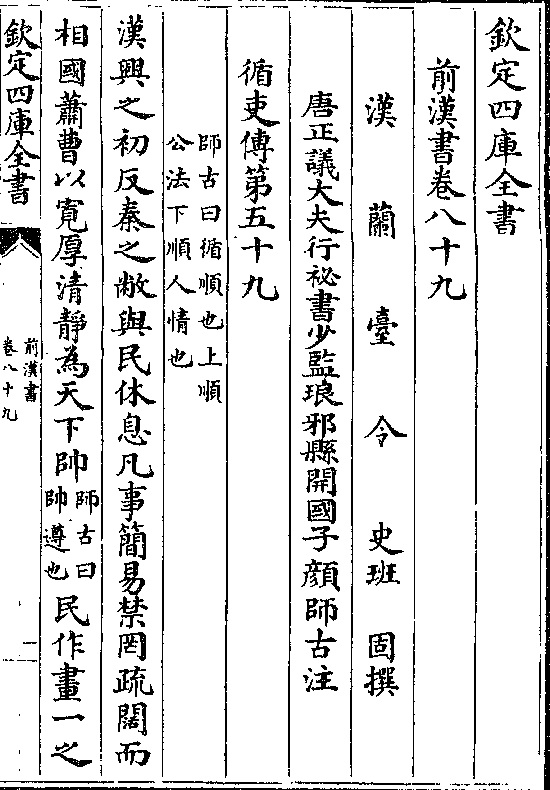 欽定四庫全書
前漢書卷八十九
漢蘭臺令史班固撰
唐正議大夫行祕書少監琅邪縣開國子顔師古注
循吏傳第五十九
師古曰循順也上順
公法下順人情也
漢興之初反秦之敝與民休息凡事簡易禁罔疏闊而
相國蕭曹以寛厚清靜為天下帥師古曰帥遵也民作畫一之
欽定四庫全書
前漢書
卷八十九
一